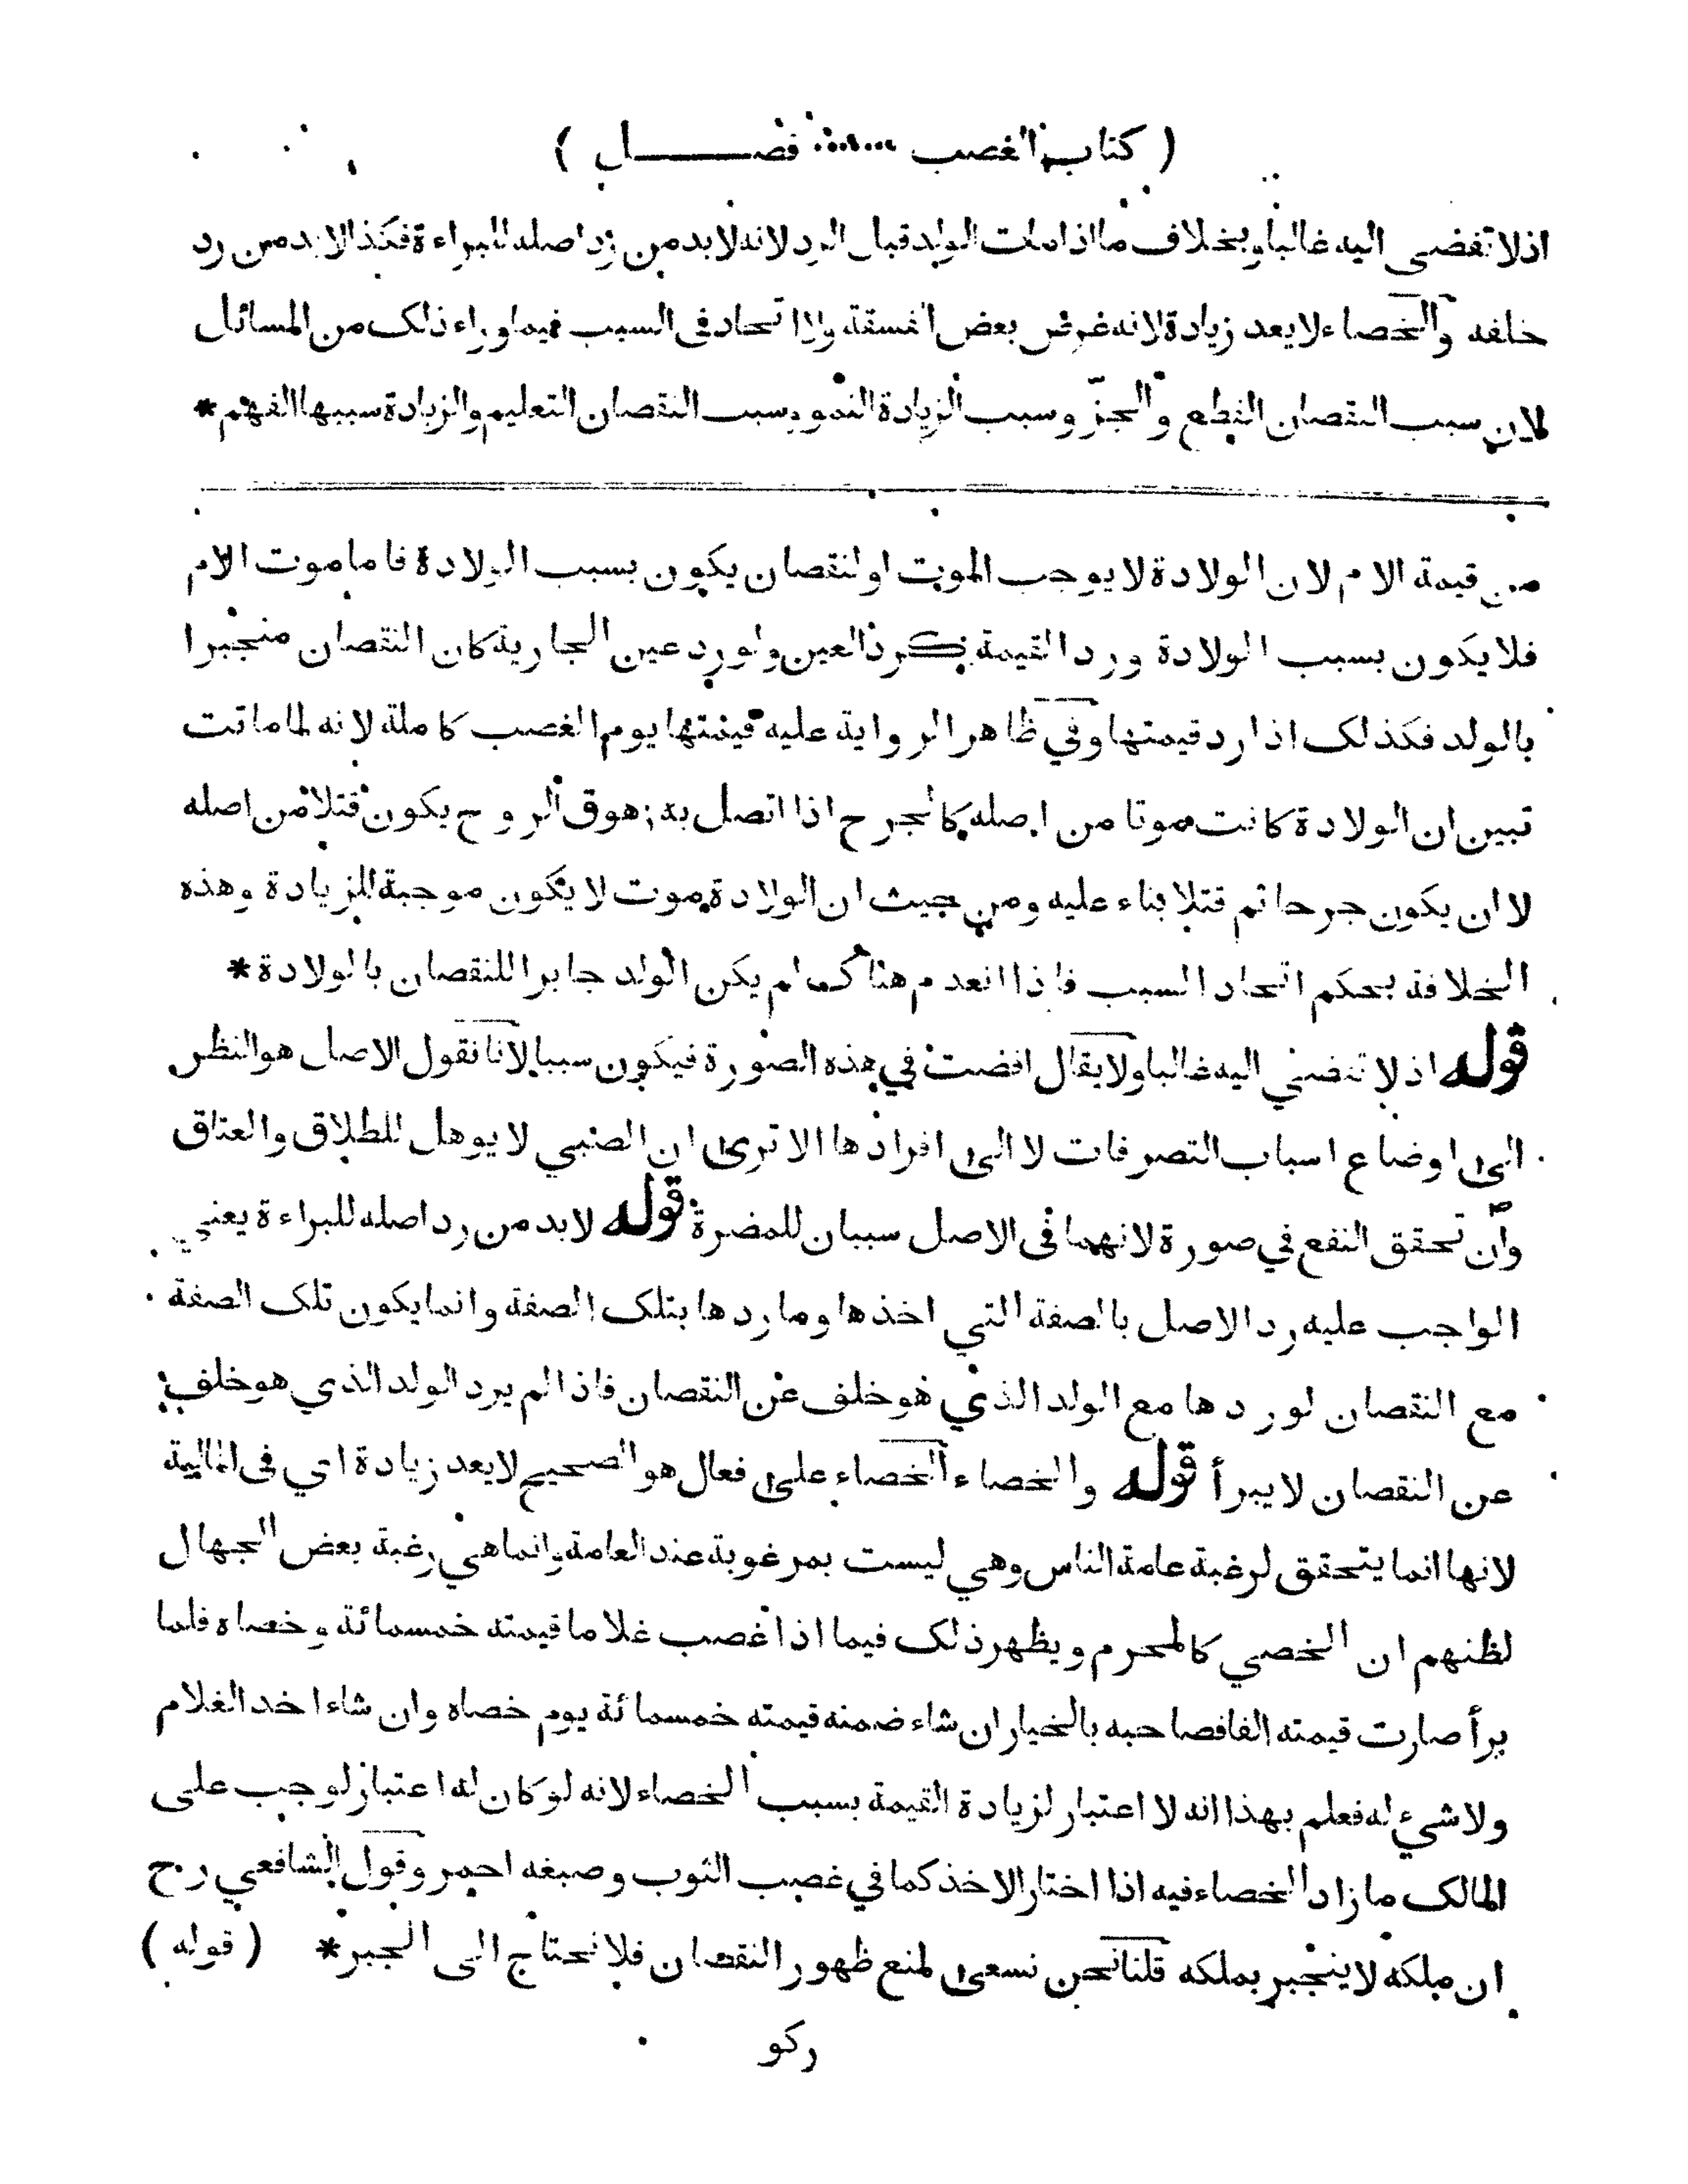 ( كتاب الغصب ...... فصــــل )
اذ لا تفضى اليه غالبا وبخلاف ما اذا مات الولد قبل الرد لانه لا بد من رد اصله للبراءة فكذا لا بد من رد
خلفه والخصاء لا يعد زيادة لانه غرض بعض الفسقة ولا اتحاد فى السبب فيما وراء ذلك من المسائل
لان سبب النقصان القطع والجزّ وسبب الزيادة النمو وسبب النقصان التعليم والزيادة سببها الفهم *
من قيمة الام لان الولادة لا يوجب الموت او لنقصان يكون بسبب الولادة فاما موت الام
فلا يكون بسبب الولادة ورد القيمة كرد العين ولو رد عين الجارية كان النقصان منجبرا
بالولد فكذلك اذا رد قيمتها وفي ظاهر الرواية عليه قيمتها يوم الغصب كاملة لانه لما ماتت
تبين ان الولادة كانت موتا من اصله كالجرح اذا اتصل به زهوق الروح يكون قتلا من اصله
لا ان يكون جرحا ثم قتلا بناء عليه ومن حيث ان الولادة موت لا يكون موجبة للزيادة وهذه
الخلافة بحكم اتحاد السبب فاذا انعدم هنا كما لم يكن الولد جابرا للنقصان بالولادة *
قوله اذ لا تفضي اليه غالبا ولا يقال افضت في هذه الصورة فيكون سببا لانا نقول الاصل هو النظر
الى اوضاع اسباب التصرفات لا الى افرادها الا ترى ان الصبي لا يوهل للطلاق والعتاق
وان تحقق النفع في صورة لانهما فى الاصل سببان للمضرة قوله لا بد من رد اصله للبراءة يعني
الواجب عليه رد الاصل بالصفة التي اخذها وما ردها بتلك الصفة وانما يكون تلك الصفة
مع النقصان لو ردها مع الولد الذي هو خلف عن النقصان فاذا لم يرد الولد الذي هو خلف
عن النقصان لا يبرأ قوله والخصاء الخصاء على فعال هو الصحيح لا يعد زيادة اي فى المالية
لانها انما يتحقق لرغبة عامة الناس وهي ليست بمرغوبة عند العامة وانما هي رغبة بعض الجهال
لظنهم ان الخصي كالمحرم ويظهر ذلك فيما اذا غصب غلاما قيمته خمسمائة وخصاه فلما
برأ صارت قيمته الفا فصاحبه بالخيار ان شاء ضمنه قيمته خمسمائة يوم خصاه وان شاء اخد الغلام
ولا شيء له فعلم بهذا انه لا اعتبار لزيادة القيمة بسبب الخصاء لانه لو كان له اعتبار لوجب على
المالك ما زاد الخصاء فيه اذا اختار الاخذ كما في غصب الثوب وصبغه احمر وقول الشافعي رح
ان ملكه لا ينجبر بملكه قلنا نحن نسعى لمنع ظهور النقصان فلا نحتاج الى الجبر * ( قوله )
ركو